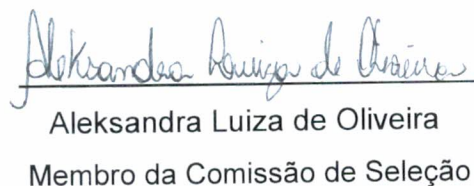 Aleksandra Luiza de Oliveira
Aleksandra Luiza de Oliveira
Membro da Comissão de Seleção